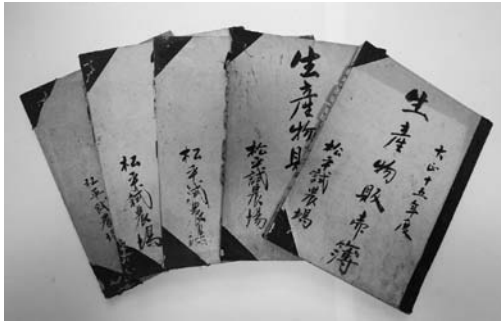 大正十五年度
生産物販売簿
松平試農場
生産物販
松平試農場
松平試農場
松平試農場
松平試農場